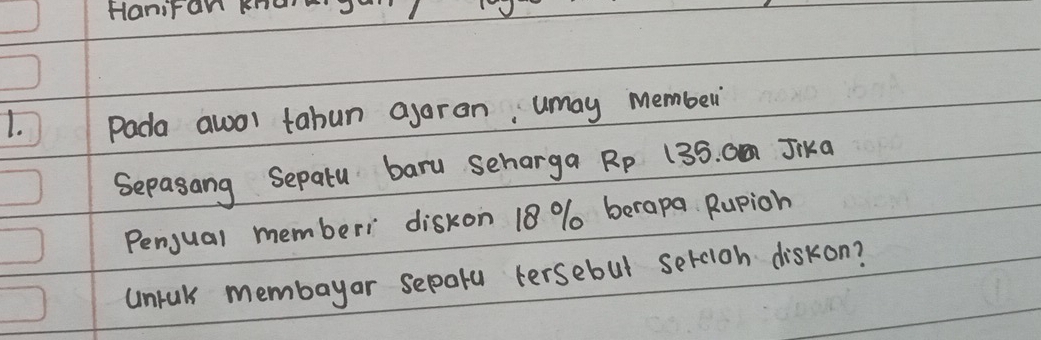 Hanifah
1. Pada awal tahun ajaran, umay membeli
Sepasang sepatu baru seharga Rp 135.000 Jika
Penjual memberi diskon 18% berapa Rupiah
Untuk membayar sepatu tersebut setelah diskon?